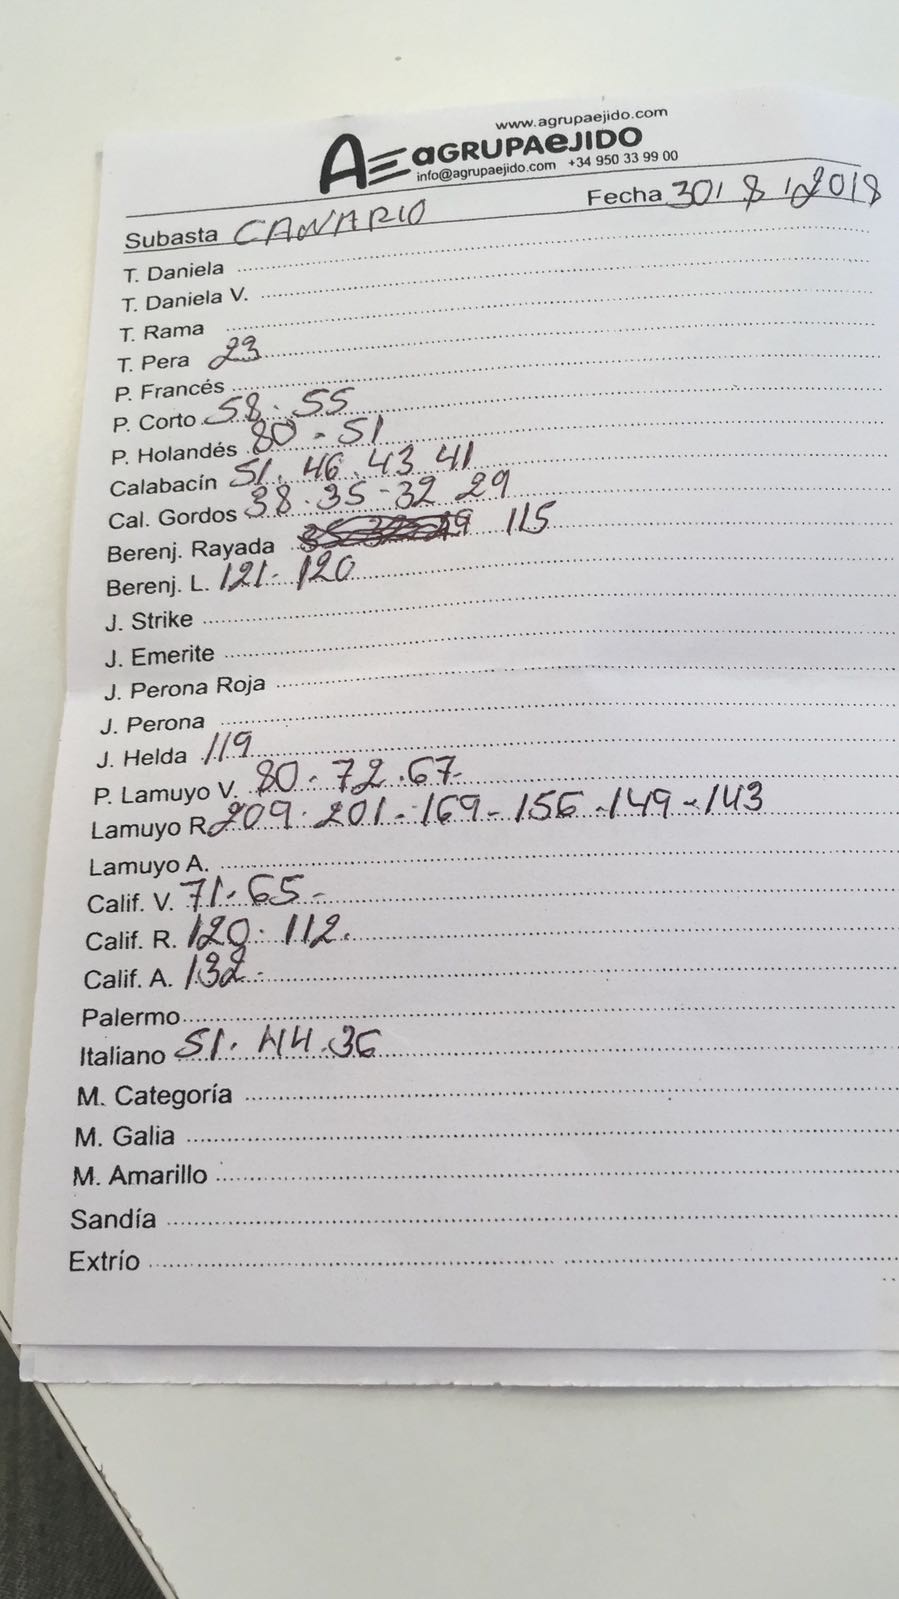 www.agrupaejido.com
AE aGRUPAeJIDO
info@agrupaejido.com +34 950 33 99 00
Subasta CANARIO Fecha 30/8/2018
T. Daniela
T. Daniela V.
T. Rama
T. Pera 23
P. Francés
P. Corto 58. 55
P. Holandés 80 - 51
Calabacín 51. 46. 43 41
Cal. Gordos 38. 35 - 32 29
Berenj. Rayada 115
Berenj. L. 121 - 120
J. Strike
J. Emerite
J. Perona Roja
J. Perona
J. Helda 119
P. Lamuyo V. 80. 72. 67-
Lamuyo R 209. 201 - 169 - 156 - 149 - 143
Lamuyo A.
Calif. V. 71. 65-
Calif. R. 120. 112.
Calif. A. 132-
Palermo
Italiano 51. 44. 36
M. Categoría
M. Galia
M. Amarillo
Sandía
Extrío